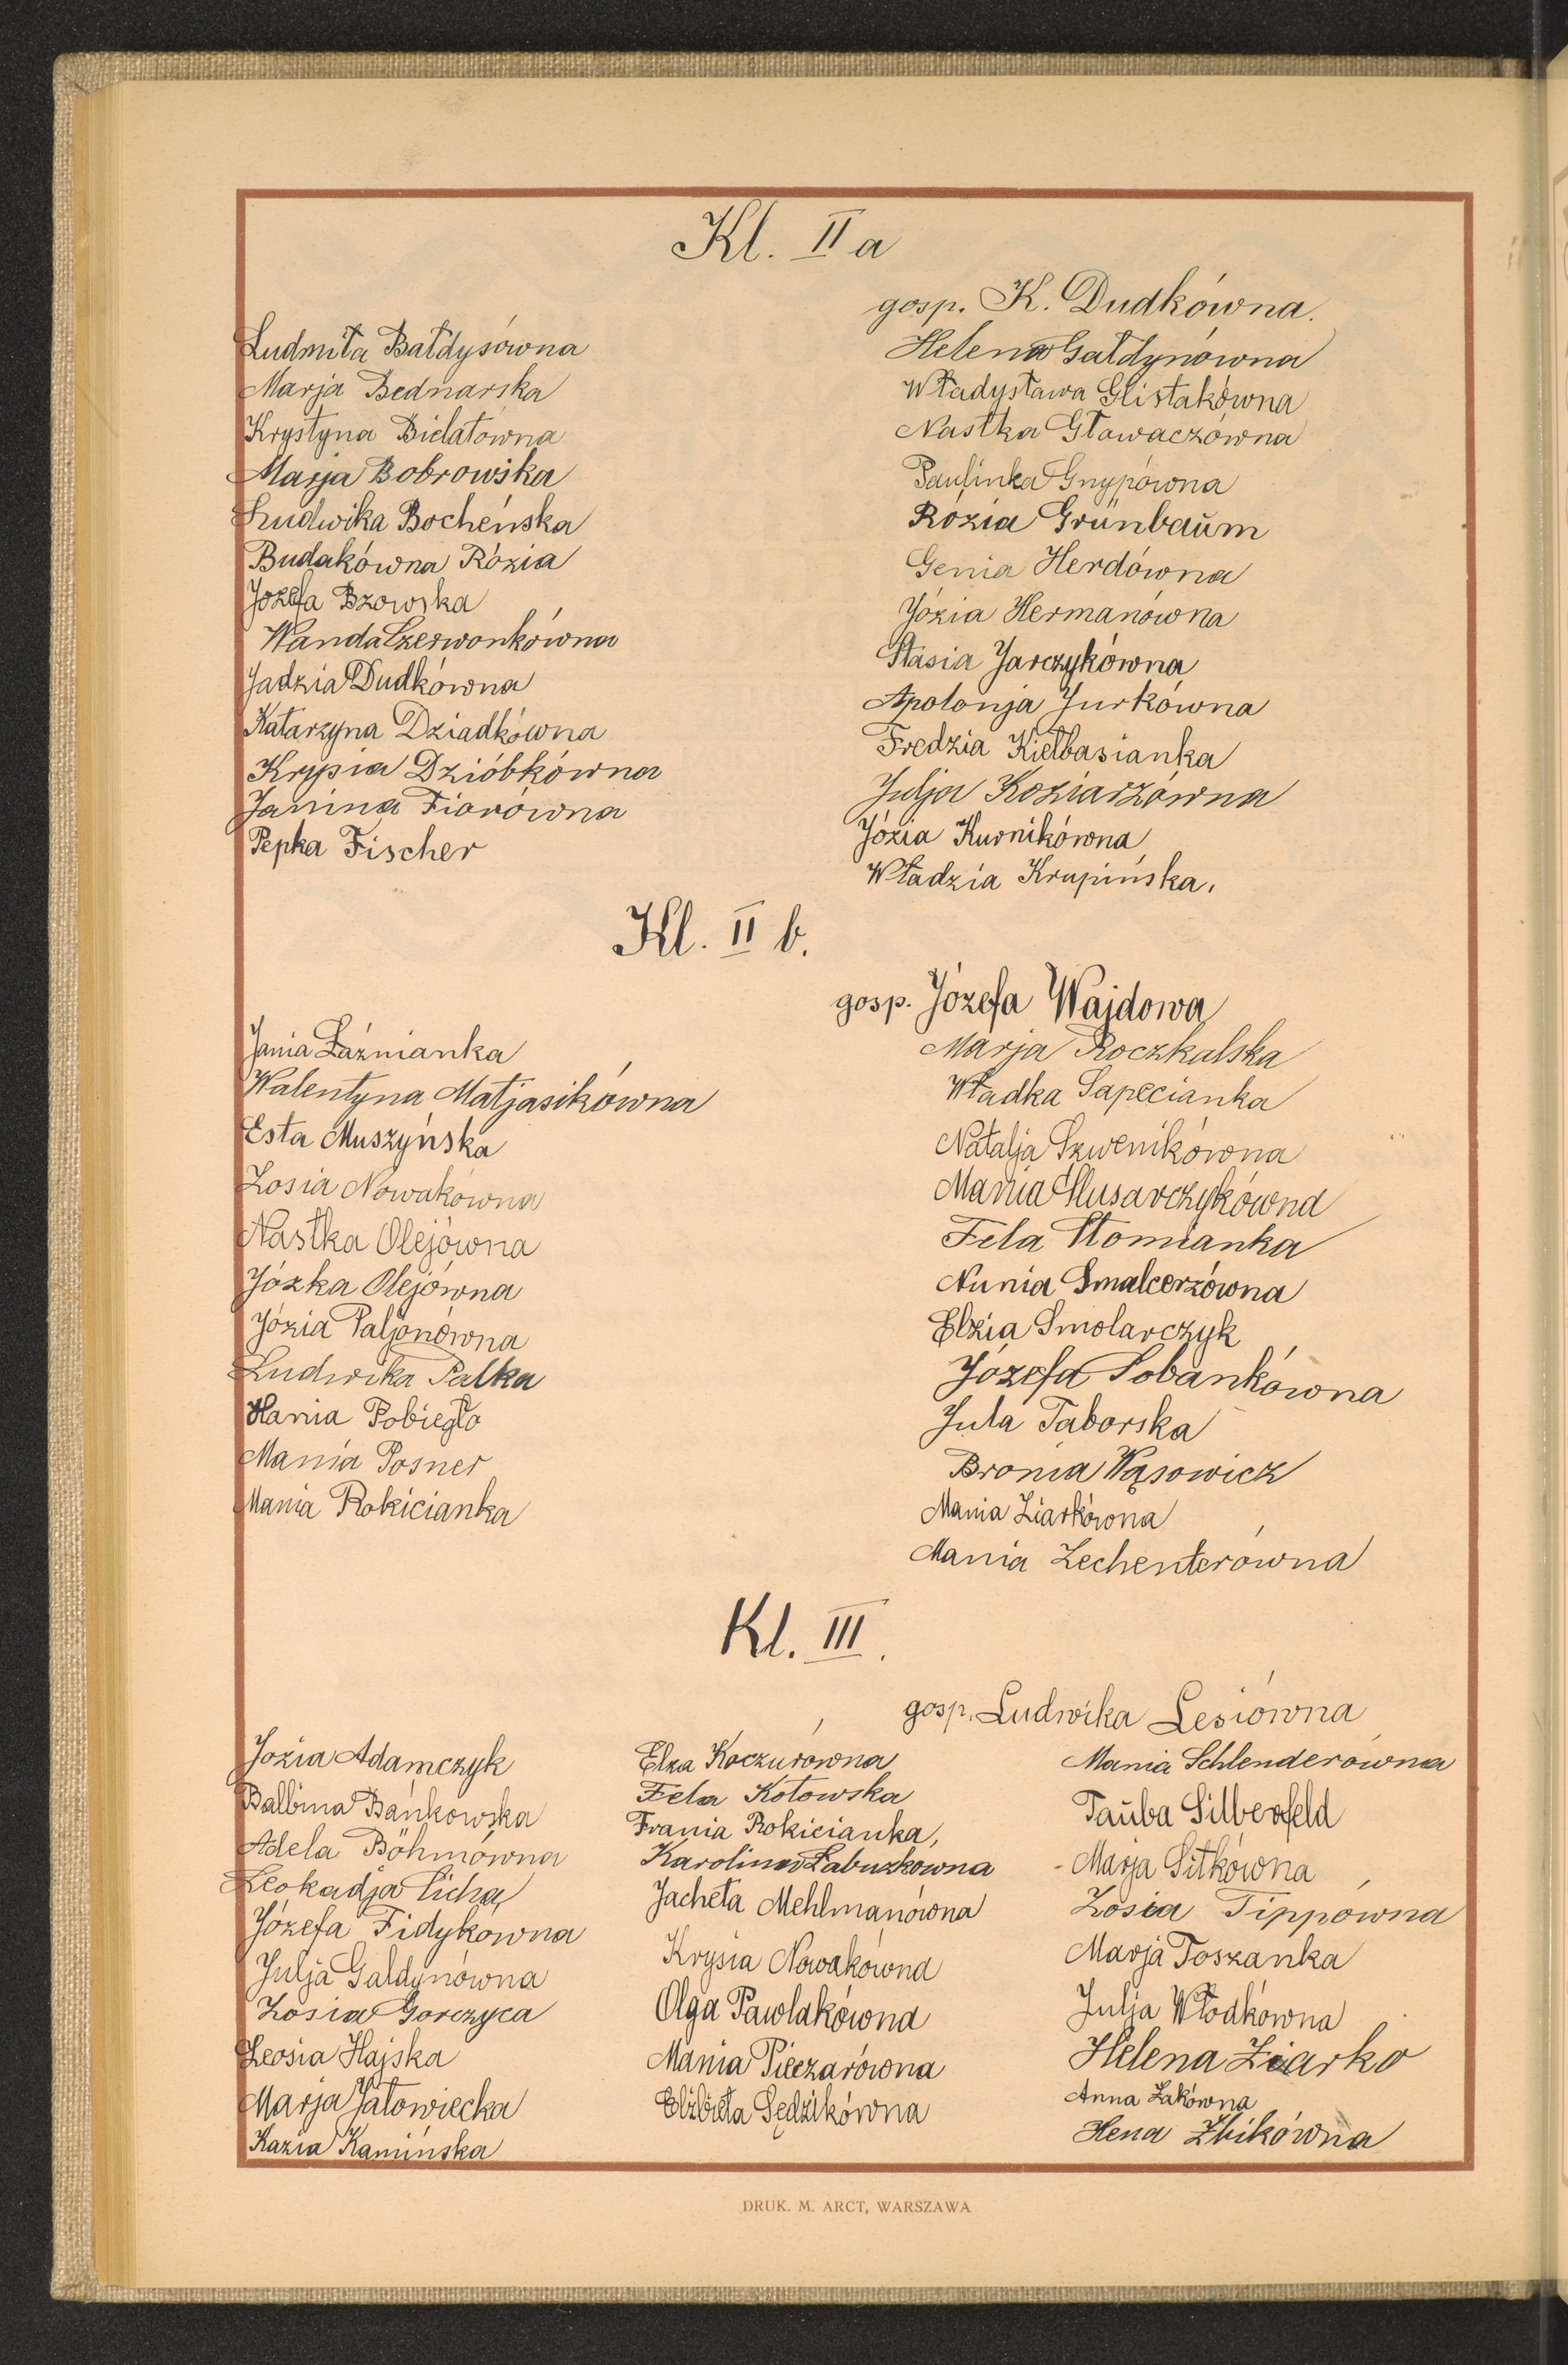 Kl. II a
gosp. K. Dudkówna.
Ludmiła Bałdysówna
Marja Bednarska
Krystyna Bielatówna
Marja Bobrowska
Ludwika Bocheńska
Budakówna Rózia
Józefa Bzowska
Wanda Czerwonkówna
Jadzia Dudkówna
Katarzyna Dziadkówna
Krysia Dzióbkówna
Janina Fiorówna
Pepka Fischer
Helena Gałdynówna
Władysława Glistakówna
Nastka Głowaczówna
Paulinka Gnypówna
Rózia Grünbaŭm
Genia Herdówna
Józia Hermanówna
Stasia Jarczykówna
Apolonja Jurkówna
Fredzia Kiełbasianka
Julja Koziarzówna
Józia Kurnikówna
Władzia Krupińska.
Kl. II b.
gosp. Józefa Wajdowa
Jania Łaźnianka
Walentyna Matjasikówna
Esta Muszyńska
Zosia Nowakówna
Nastka Olejówna
Józka Olejówna
Józia Paljonówna
Ludwika Palka
Hania Pobiegło
Mania Posner
Mania Rokicianka
Marja Roczkalska
Władka Sapecianka
Natalja Szwenikówna
Mania Ślusarczykówna
Fela Słomianka
Nunia Smalcerzówna
Elzia Smolarczyk
Józefa Sobankówna
Jula Taborska
Bronia Wąsowicz
Mania Ziarkówna
Mania Zechenterówna
Kl. III.
gosp. Ludwika Lesiówna
Józia Adamczyk
Balbina Bańkowska
Adela Böhmówna
Leokadja Cicha
Józefa Fidykowna
Julja Galdynówna
Zosia Gorczyca
Leosia Hajska
Marja Jałowiecka
Kazia Kamińska
Elza Koczurówna
Fela Kotowska
Frania Rokicianka,
Karolina Łabuzkówna
Jacheta Mehlmanówna
Krysia Nowakówna
Olga Pawlakówna
Mania Pieczarówna
Elżbieta Sędzikówna
Mania Schlenderówna
Taŭba Silberfeld
Marja Sitkówna
Zosia Tippówna
Marja Toszanka
Julja Włodkówna
Helena Ziarko
Anna Żakówna
Hena Żbikówna
DRUK. M. ARCT, WARSZAWA